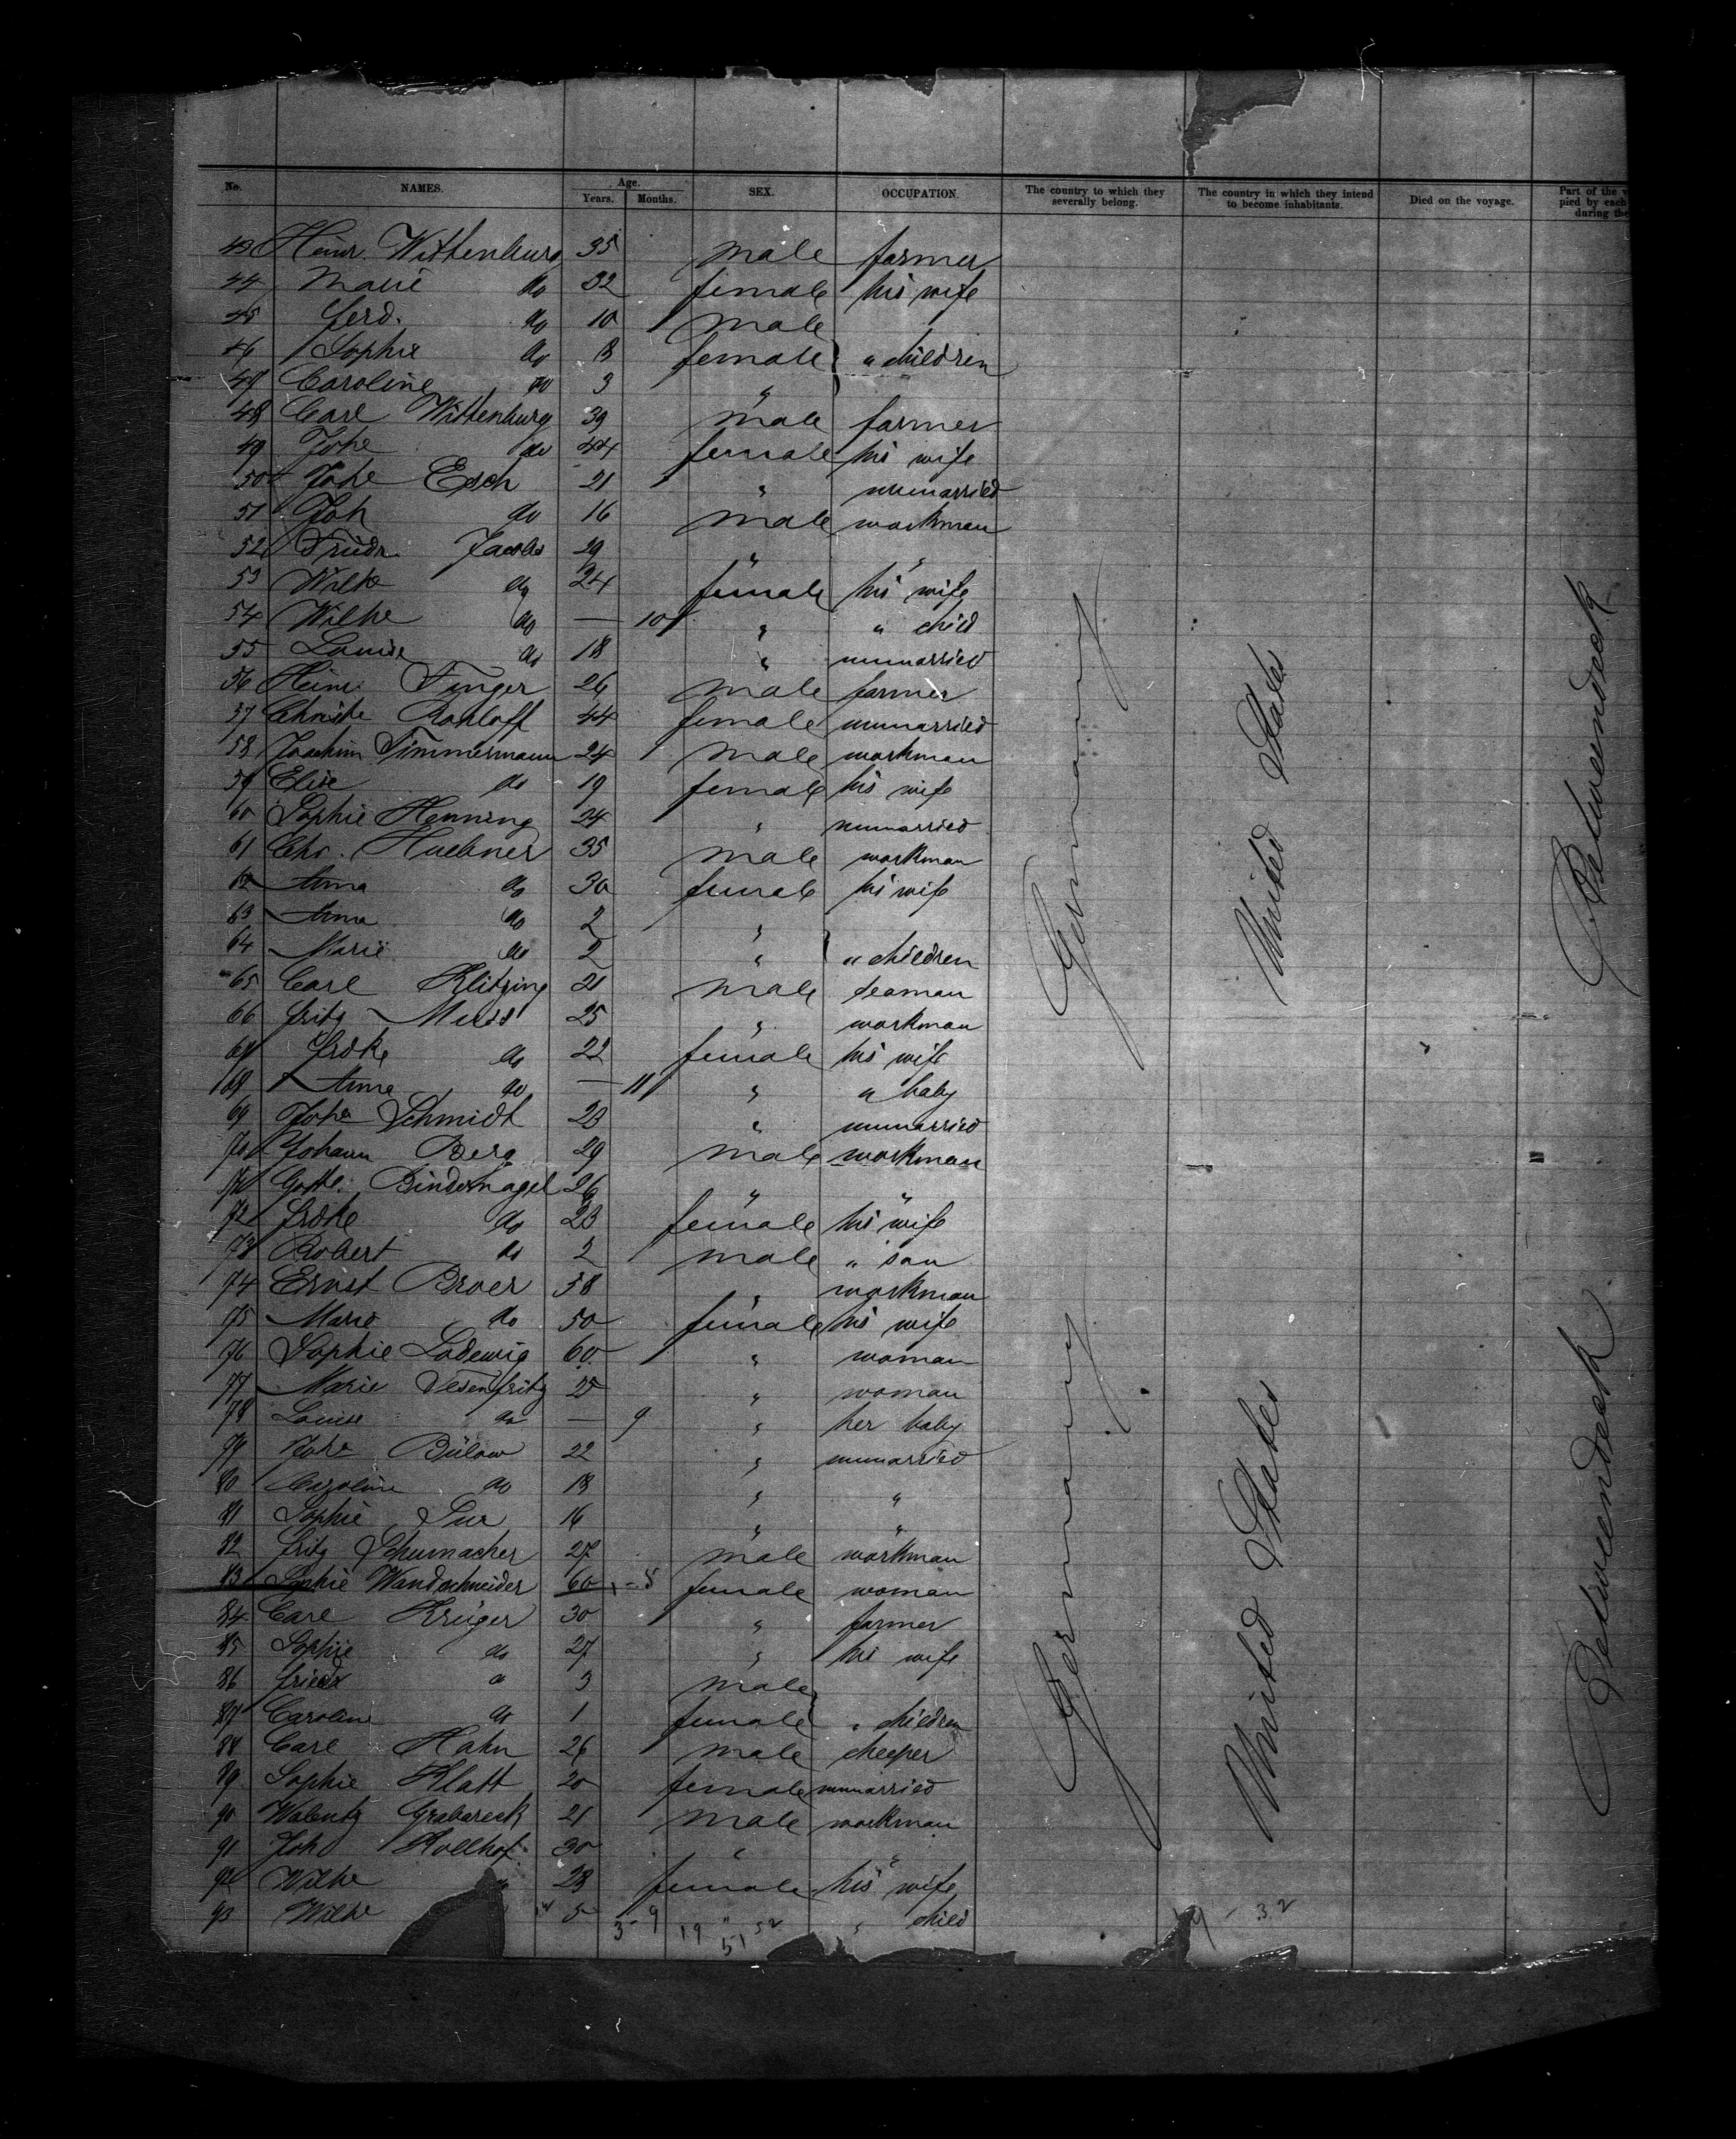 No. NAMES. Age. Years. Months. SEX. OCCUPATION. The country to which they severally belong. The country in which they intend to become inhabitants. Died on the voyage. Part of the v pied by each during the
43 Heinr. Wittenburg 35 male farmer
44 Marie do 32 female his wife
45 Ferd. do 10 male
46 Sophie do 8 female } " children
47 Caroline do 3 "
48 Carl Wittenburg 39 male farmer
49 Johe do 44 female his wife
50 Johe Esch 21 " unmarried
51 Joh do 16 male workman
52 Friedr. Jacobs 29 " "
53 Wilhe do 24 female his wife
54 Wilhe do — 10 " " child
55 Louise do 18 " unmarried
56 Heinr. Finger 26 male farmer
57 Christe Rohloff 44 female unmarried
58 Joachim Timmermann 24 male workman
59 Elise do 19 female his wife
60 Sophie Henning 24 " unmarried
61 Chr. Huebner 35 male workman
62 Anna do 30 female his wife
63 Anna do 2 "
64 Marie do 2 " } " children
65 Carl Klitzing 21 male seaman
66 Fritz Meess 25 " workman
67 Fridke do 22 female his wife
68 Anna do — 11 " " baby
69 Johe Schmidt 23 " unmarried
70 Johann Berg 29 male workman
71 Gottl. Bindernagel 26 " "
72 Fridke do 23 female his wife
73 Robert do 2 male " son
74 Ernst Broer 58 " workman
75 Marie do 50 female his wife
76 Sophie Ladewig 60 " woman
77 Marie Desenfritz 25 " woman
78 Louise do — 9 " her baby
79 Johe Bülow 22 " unmarried
80 Caroline do 18 " "
81 Sophie Sur 16 " "
82 Fritz Schumacher 27 male workman
83 Sophie Wandschneider 60 female woman
84 Carl Krüger 30 " farmer
85 Sophie do 27 " his wife
86 Friedr do 3 male
87 Caroline do 1 female } " children
88 Carl Hahn 26 male cheeper
89 Sophie Klatt 20 female unmarried
90 Walentz Grabareck 21 male workman
91 Joh Hollhof 30 " "
92 Wilhe 28 female his wife
93 Wilhe 5 " child
3 - 9 19 " 52
51
19 - 32
Germany United States Betweendeck
Germany United States Betweendeck